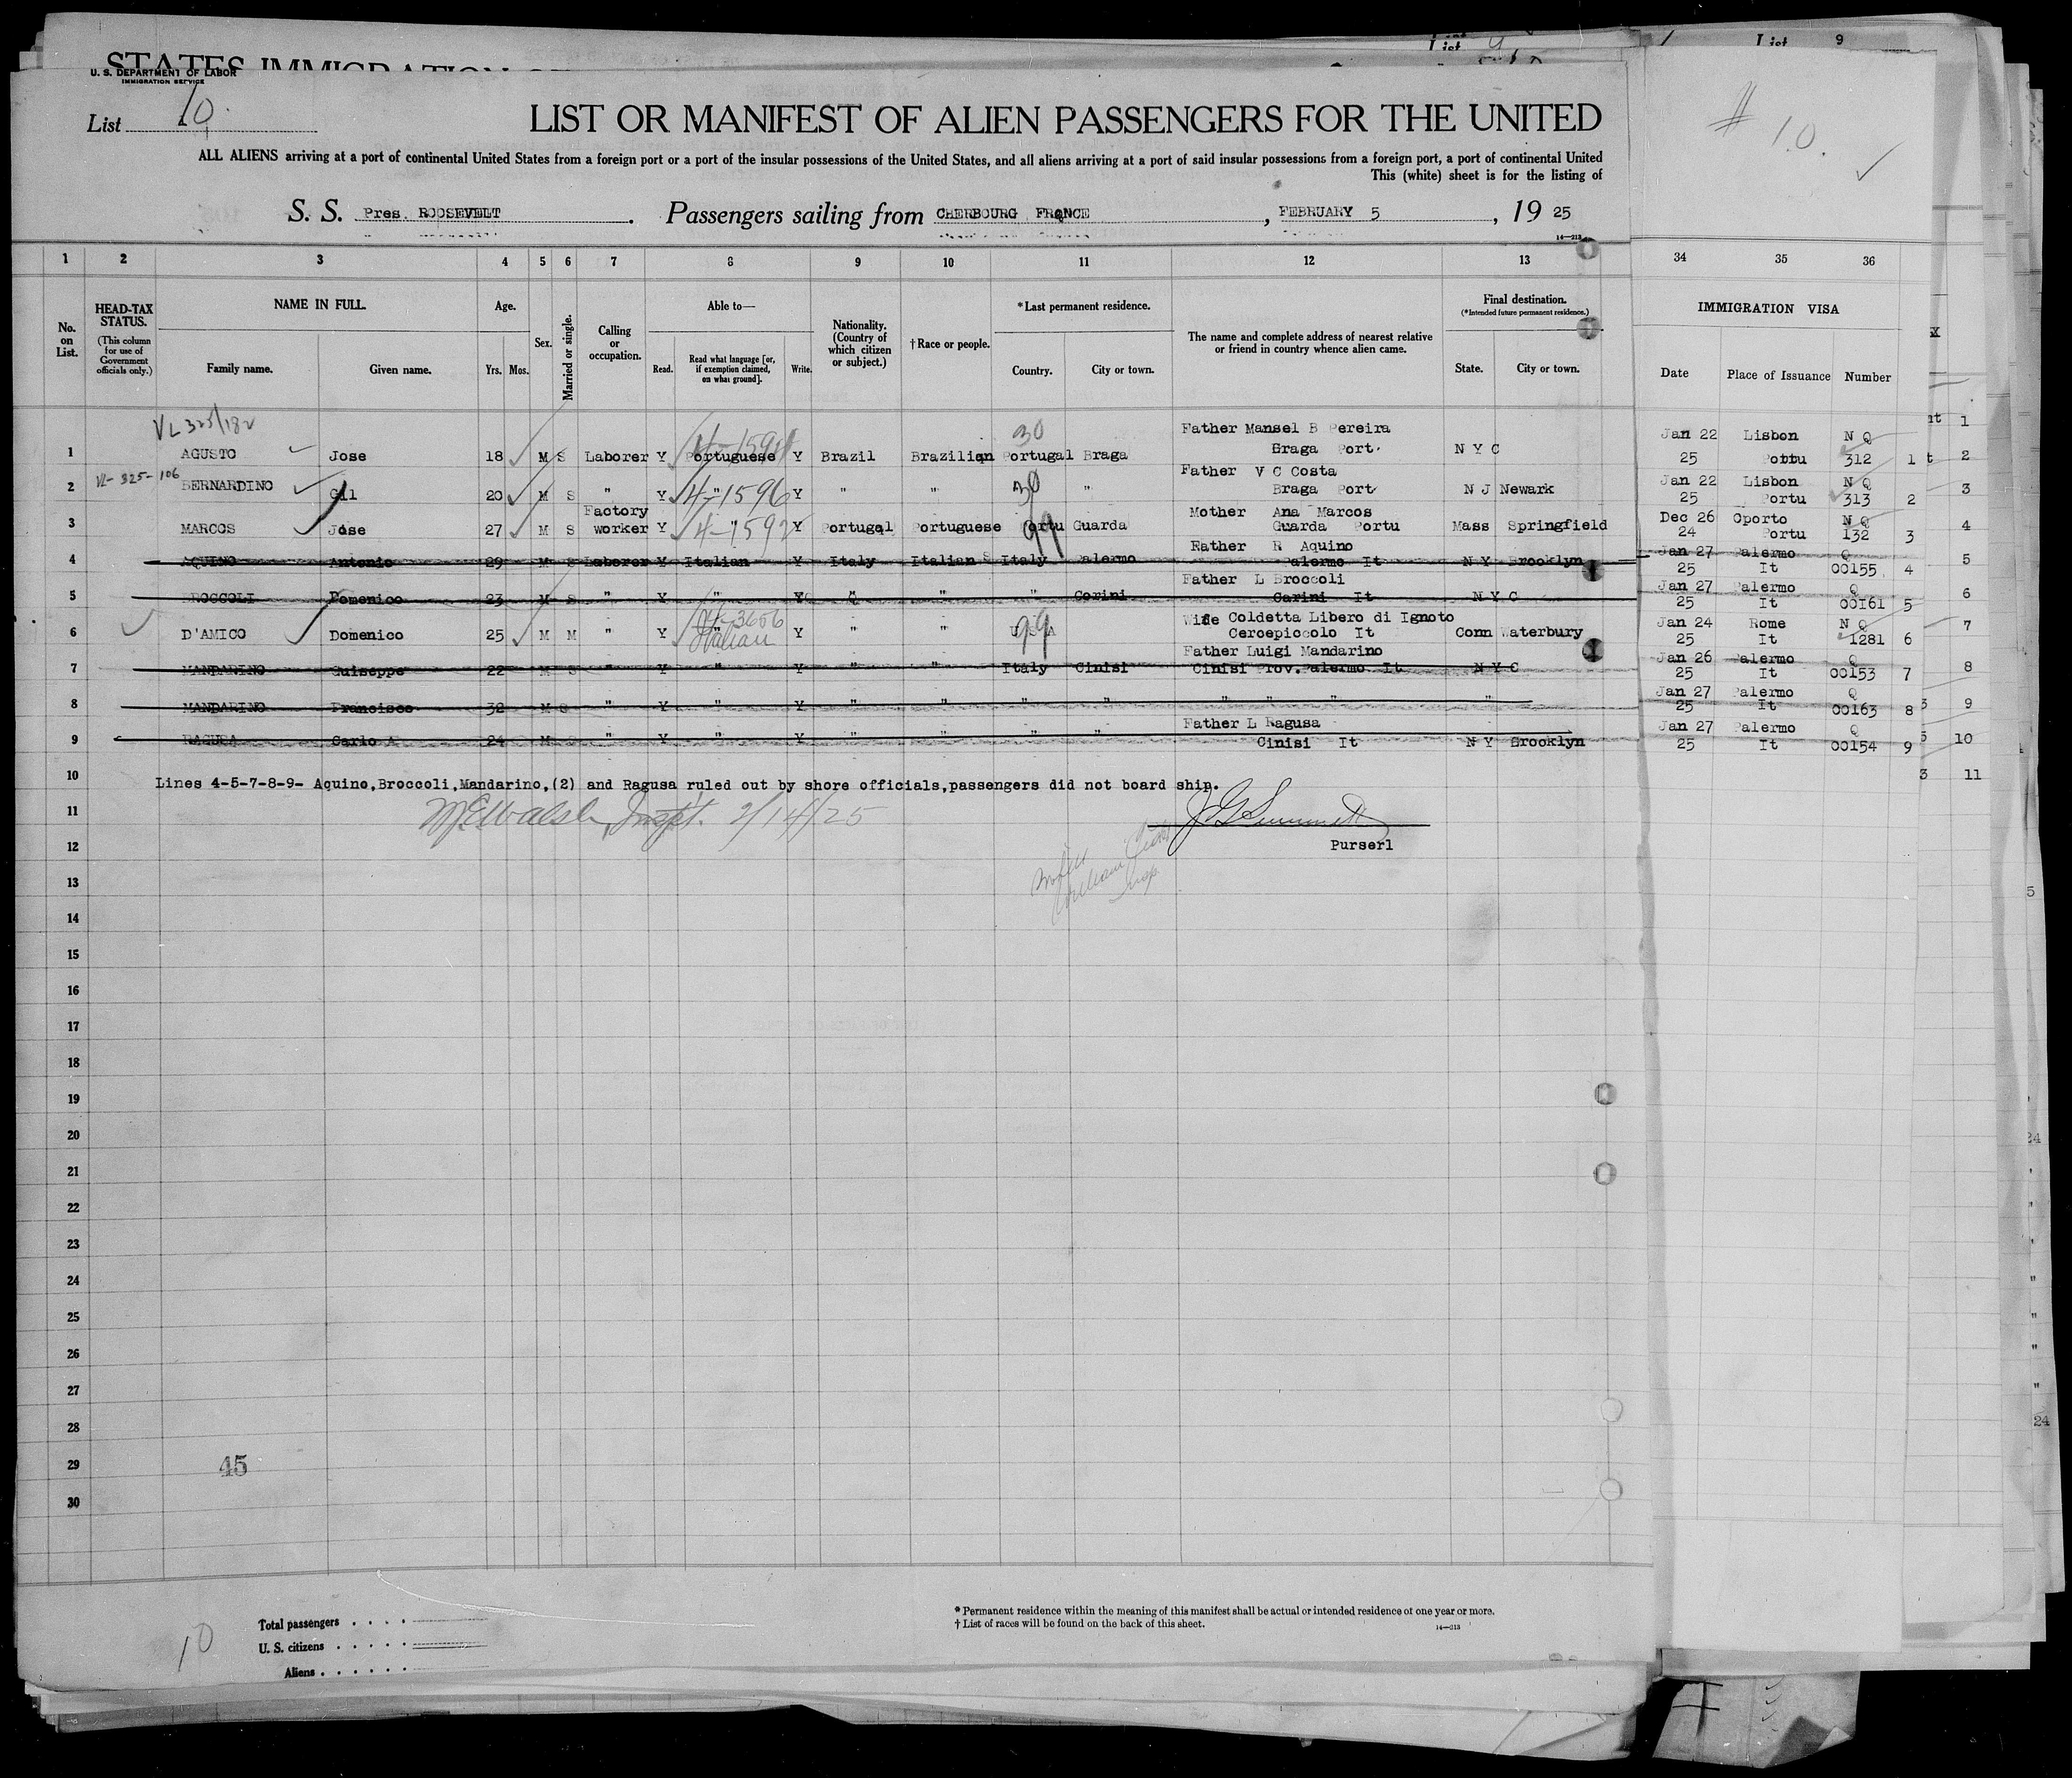 STATES IMMIGRATION
List
List 9
U. S. DEPARTMENT OF LABOR
IMMIGRATION SERVICE
List 10
LIST OR MANIFEST OF ALIEN PASSENGERS FOR THE UNITED
# 10.
ALL ALIENS arriving at a port of continental United States from a foreign port or a port of the insular possessions of the United States, and all aliens arriving at a port of said insular possessions from a foreign port, a port of continental United
This (white) sheet is for the listing of
S. S. Pres. ROOSEVELT. Passengers sailing from CHERBOURG FRANCE, FEBRUARY 5, 19 25
14—213
1 2 3 4 5 6 7 8 9 10 11 12 13 34 35 36
No. on List.
HEAD-TAX STATUS. (This column for use of Government officials only.)
NAME IN FULL
Family name. Given name.
Age.
Yrs. Mos.
Sex.
Married or single.
Calling or occupation.
Able to—
Read. Read what language [or, if exemption claimed, on what ground]. Write.
Nationality. (Country of which citizen or subject.)
†Race or people.
*Last permanent residence.
Country. City or town.
The name and complete address of nearest relative or friend in country whence alien came.
Final destination.
(*Intended future permanent residence.)
State. City or town.
IMMIGRATION VISA
Date Place of Issuance Number
VL 325/182 30 Father Mansel B Pereira Jan 22 Lisbon N Q
1 AGUSTO Jose 18 M S Laborer Y Portuguese Y Brazil Brazilian Portugal Braga Braga Port. N Y C 25 Portu 312 1
VL-325-106 Father V C Costa Jan 22 Lisbon N Q
2 BERNARDINO Gil 20 M S " Y 4-1596 Y " " 30 " Braga Port N J Newark 25 Portu 313 2
Factory Mother Ana Marcos Dec 26 Oporto N Q
3 MARCOS Jose 27 M S worker Y " 4-1592 Y Portugal Portuguese Portu 99 Guarda Guarda Portu Mass Springfield 24 Portu 132 3
Father R Aquino Jan 27 Palermo Q
4 AQUINO Antonio 29 M S Laborer Y Italian Y Italy Italian S Italy Palermo Palermo It N Y Brooklyn 25 It 00155 4
Father L Broccoli Jan 27 Palermo Q
5 BROCCOLI Domenico 23 M S " Y " Y " " " Corini Carini It N Y C 25 It 00161 5
4-3656 Wife Coldetta Libero di Ignoto Jan 24 Rome N Q
6 D'AMICO Domenico 25 M M " Y " Italian Y " " U S A 99 Cercepiccolo It Conn Waterbury 25 It 1281 6
Father Luigi Mandarino Jan 26 Palermo Q
7 MANDARINO Guiseppe 22 M S " Y " Y " " Italy Cinisi Cinisi Prov. Palermo It N Y C 25 It 00153 7
Jan 27 Palermo Q
8 MANDARINO Francisco 32 M S " Y " Y " " " " " " " " 25 It 00163 8
Father L Ragusa Jan 27 Palermo Q
9 RAGUSA Carlo A 24 M S " Y " Y " " " " Cinisi It N Y Brooklyn 25 It 00154 9
10 Lines 4-5-7-8-9- Aquino,Broccoli,Mandarino,(2) and Ragusa ruled out by shore officials,passengers did not board ship.
11 M E Walsh, Inspt. 2/14/25
12 Purserl
13
14
15
16
17
18
19
20
21
22
23
24
25
26
27
28
29 45
30
1
2
3
4
5
6
7
8
9
10
11
10
Total passengers
U. S. citizens
Aliens
* Permanent residence within the meaning of this manifest shall be actual or intended residence of one year or more.
† List of races will be found on the back of this sheet.
14—213